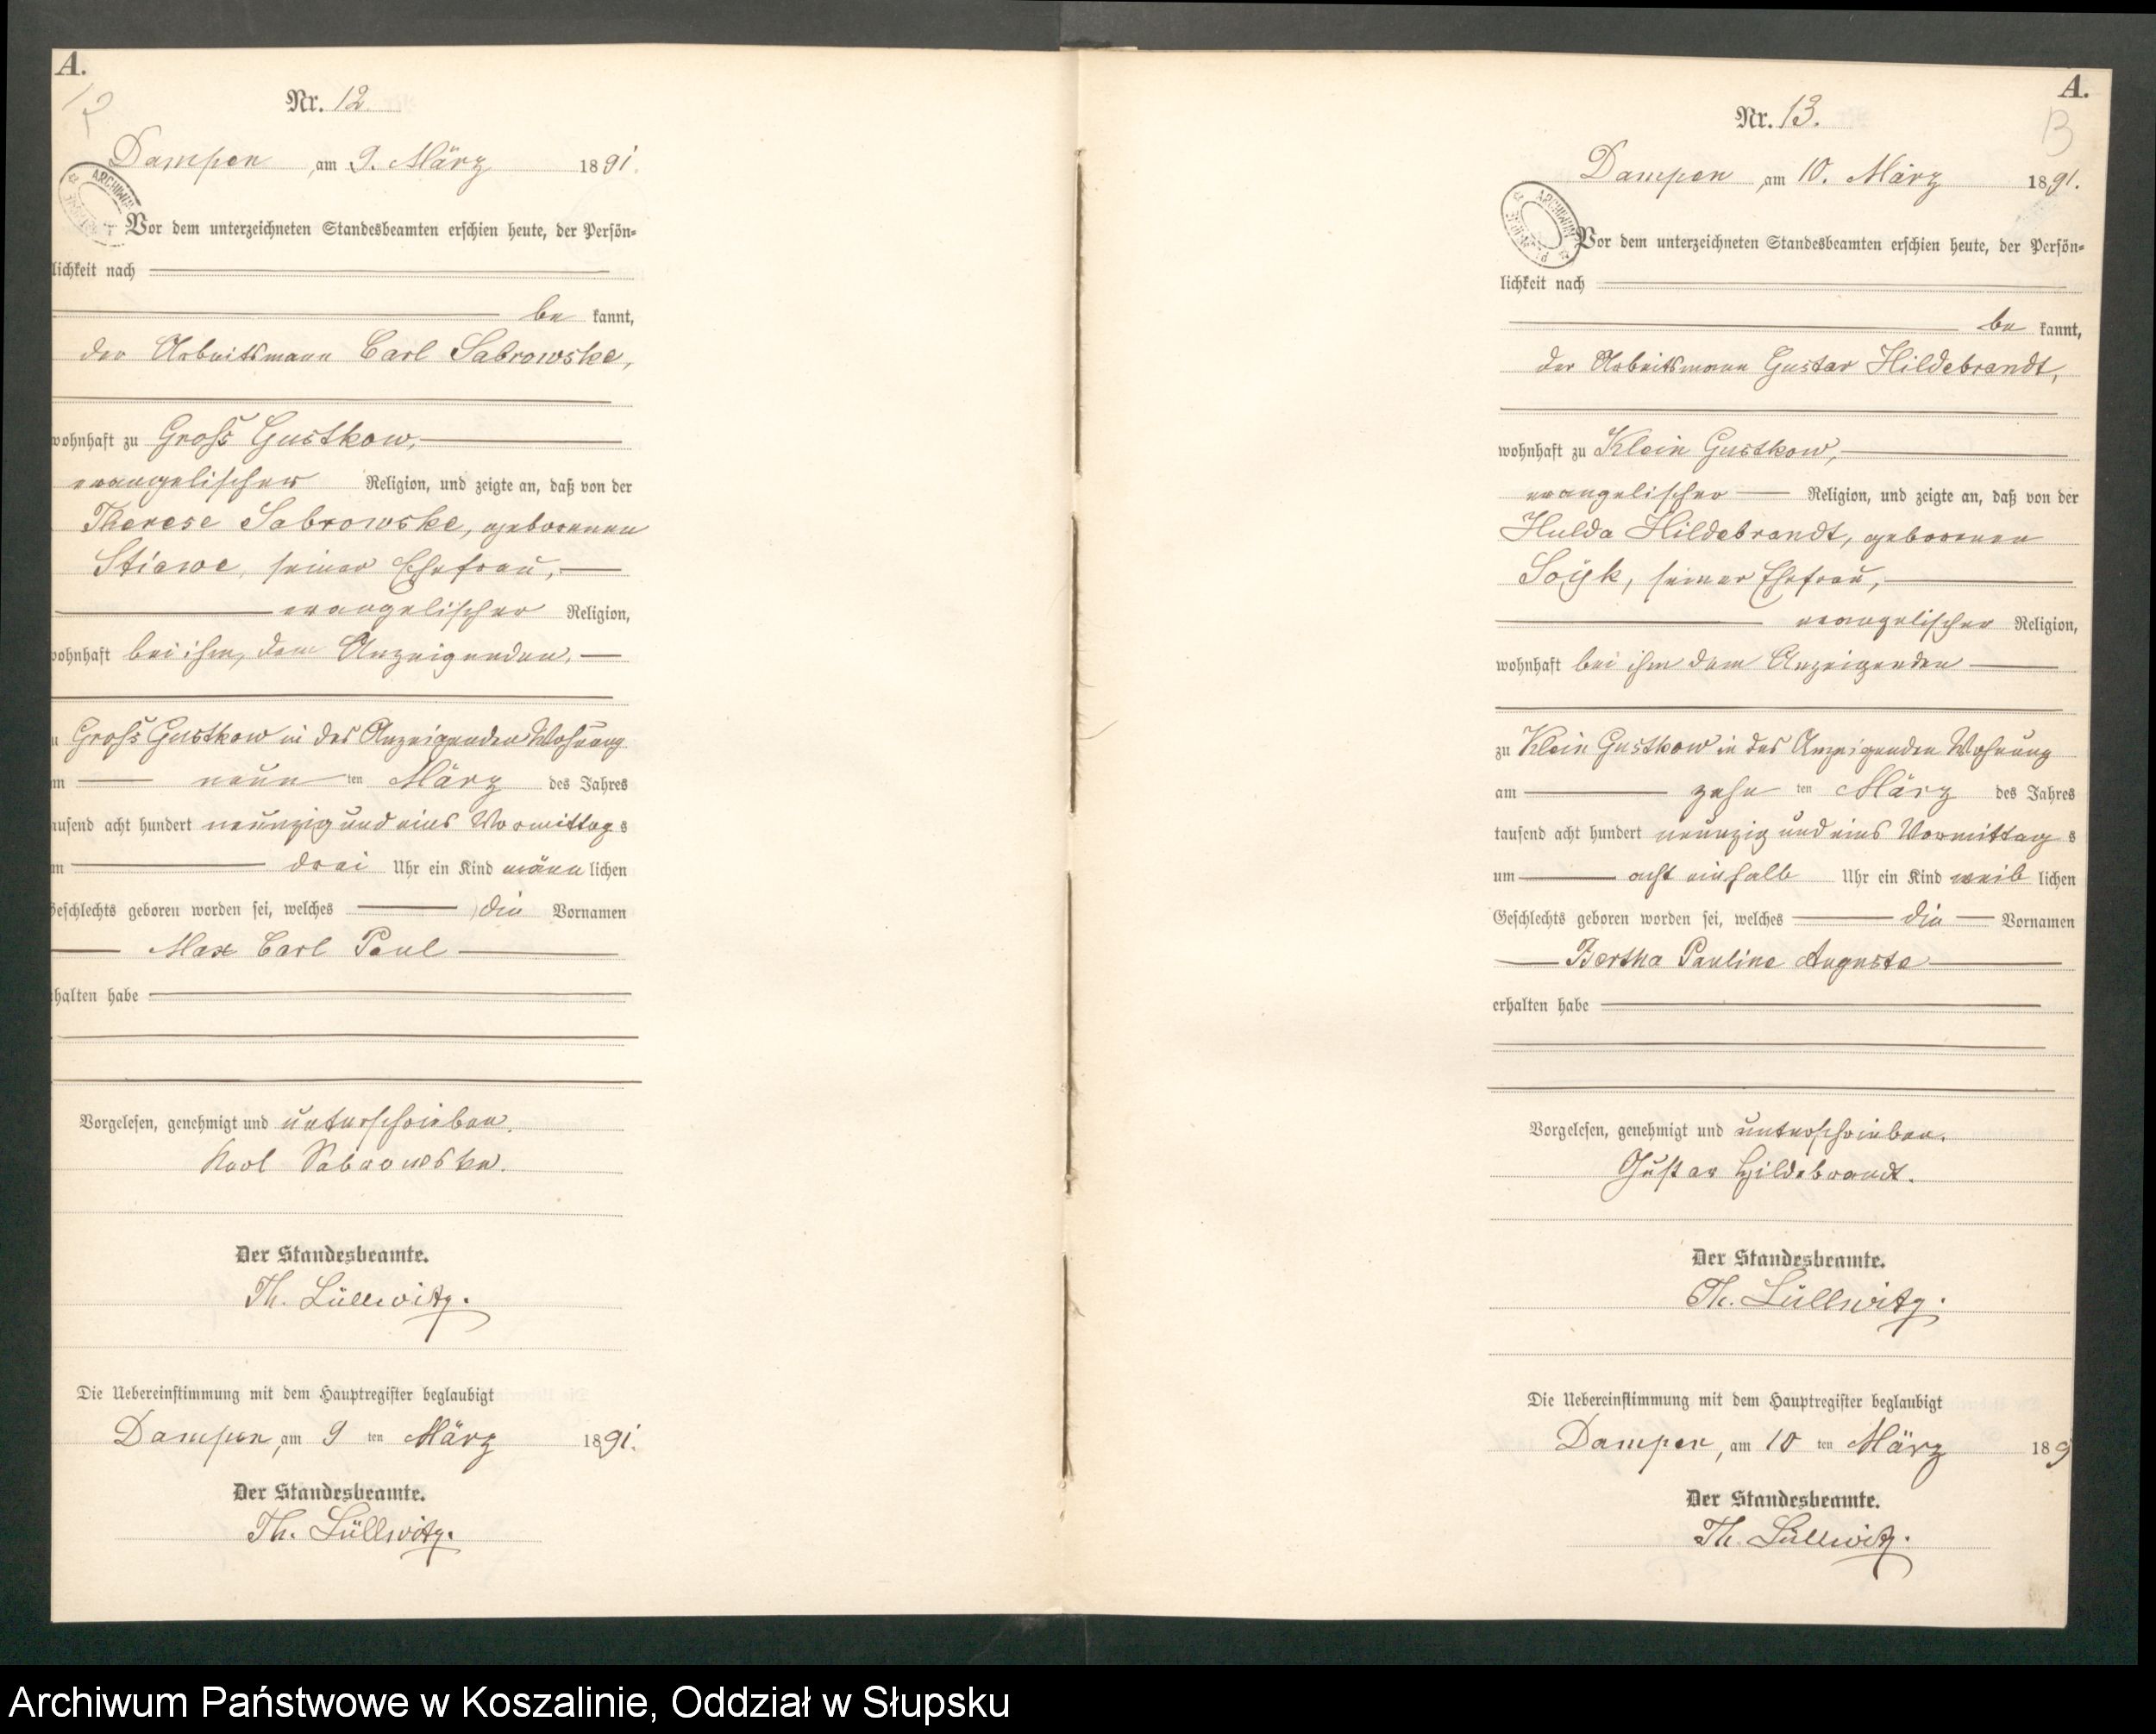 A.
12
Nr. 12.
Dampen, am 9. März 1891.
ARCHIWUM
Vor dem unterzeichneten Standesbeamten erschien heute, der Persön-
lichkeit nach
be kannt,
der Arbeitsmann Carl Sabrowske,
wohnhaft zu Gross Gustkow,
evangelischer Religion, und zeigte an, daß von der
Therese Sabrowske, geborenen
Stiewe, seiner Ehefrau,
evangelischer Religion,
wohnhaft bei ihm, dem Anzeigenden,
Gross Gustkow in des Anzeigenden Wohnung
neun ten März des Jahres
tausend acht hundert neunzig und eins Vormittags
drei Uhr ein Kind männlichen
Geschlechts geboren worden sei, welches die Vornamen
Max Carl Paul
erhalten habe
Vorgelesen, genehmigt und unterschrieben.
Karl Sabrowske.
Der Standesbeamte.
Th. Lüllwitz.
Die Uebereinstimmung mit dem Hauptregister beglaubigt
Dampen, am 9 ten März 1891.
Der Standesbeamte.
Th. Lüllwitz.
A.
13
Nr. 13.
Dampen, am 10. März 1891.
ARCHIWUM
Vor dem unterzeichneten Standesbeamten erschien heute, der Persön-
lichkeit nach
be kannt,
der Arbeitsmann Gustav Hildebrandt,
wohnhaft zu Klein Gustkow,
evangelischer Religion, und zeigte an, daß von der
Hulda Hildebrandt, geborenen
Soÿk, seiner Ehefrau,
evangelischer Religion,
wohnhaft bei ihm dem Anzeigenden
zu Klein Gustkow in des Anzeigenden Wohnung
am zehn ten März des Jahres
tausend acht hundert neunzig und eins Vormittags
um acht einhalb Uhr ein Kind weiblichen
Geschlechts geboren worden sei, welches die Vornamen
Bertha Pauline Auguste
erhalten habe
Vorgelesen, genehmigt und unterschrieben.
Gustav Hildebrandt.
Der Standesbeamte.
Th. Lüllwitz.
Die Uebereinstimmung mit dem Hauptregister beglaubigt
Dampen, am 10 ten März 189
Der Standesbeamte.
Th. Lüllwitz.
Archiwum Państwowe w Koszalinie, Oddział w Słupsku